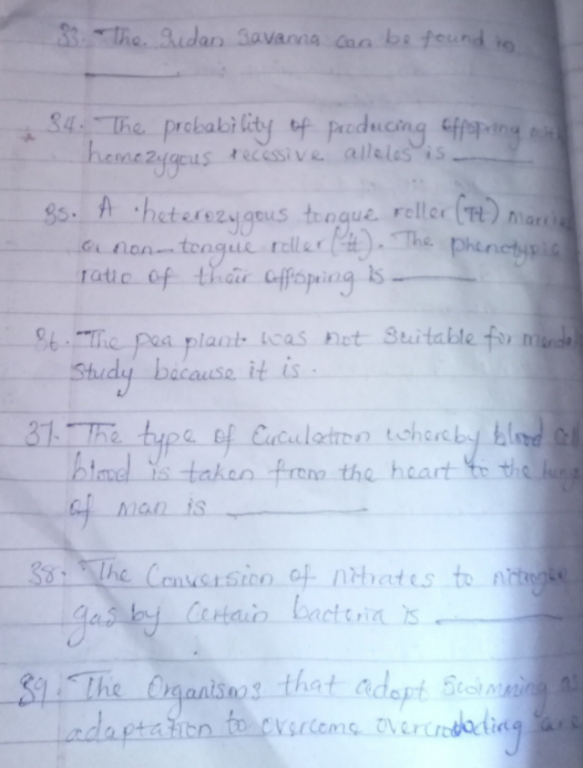 33. The Sudan Savanna can be found in
34. The probability of producing offspring with
homozygous recessive alleles is
35. A heterozygous tongue roller (Tt) marries
a non-tongue roller (tt). The phenotypic
ratio of their offspring is
36. The pea plant was not suitable for
study because it is.
37. The type of Circulation whereby blood
blood is taken from the heart to the lungs
of man is
38. The Conversion of nitrates to nitrogen
gas by certain bacteria is
39. The Organisms that adopt swimming as
adaptation to overcome overcrowding are